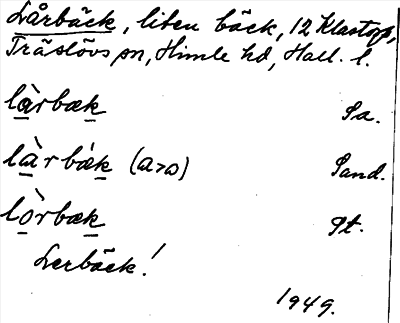 Lårbäck, liten bäck, 12 Klastorp,
Träslövs sn, Himle hd, Hall. l.
là̱rbæḵ Sa.
là̱rbǽḵ (a>o) Sand.
lò̱rbæḵ St.
Lerbäck!
1949.